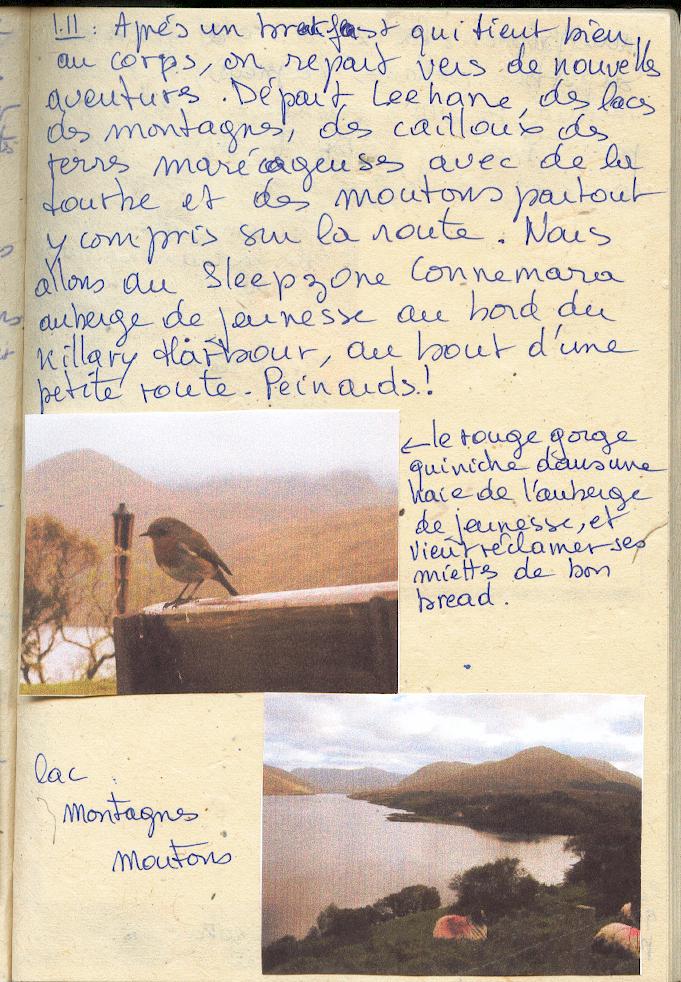 1.11 : Après un breakfast qui tient bien
au corps, on repart vers de nouvelles
aventures. Départ Leehane, des lacs
des montagnes, des cailloux des
terres marécageuses avec de la
tourbe et des moutons partout
y compris sur la route. Nous
allons au Sleepzone Connemara
auberge de jeunesse au bord du
Killary Harbour, au bout d'une
petite route. Peinards!
← le rouge gorge
qui niche dans une
haie de l'auberge
de jeunesse, et
vient réclamer ses
miettes de bon
bread.
lac
montagnes
moutons